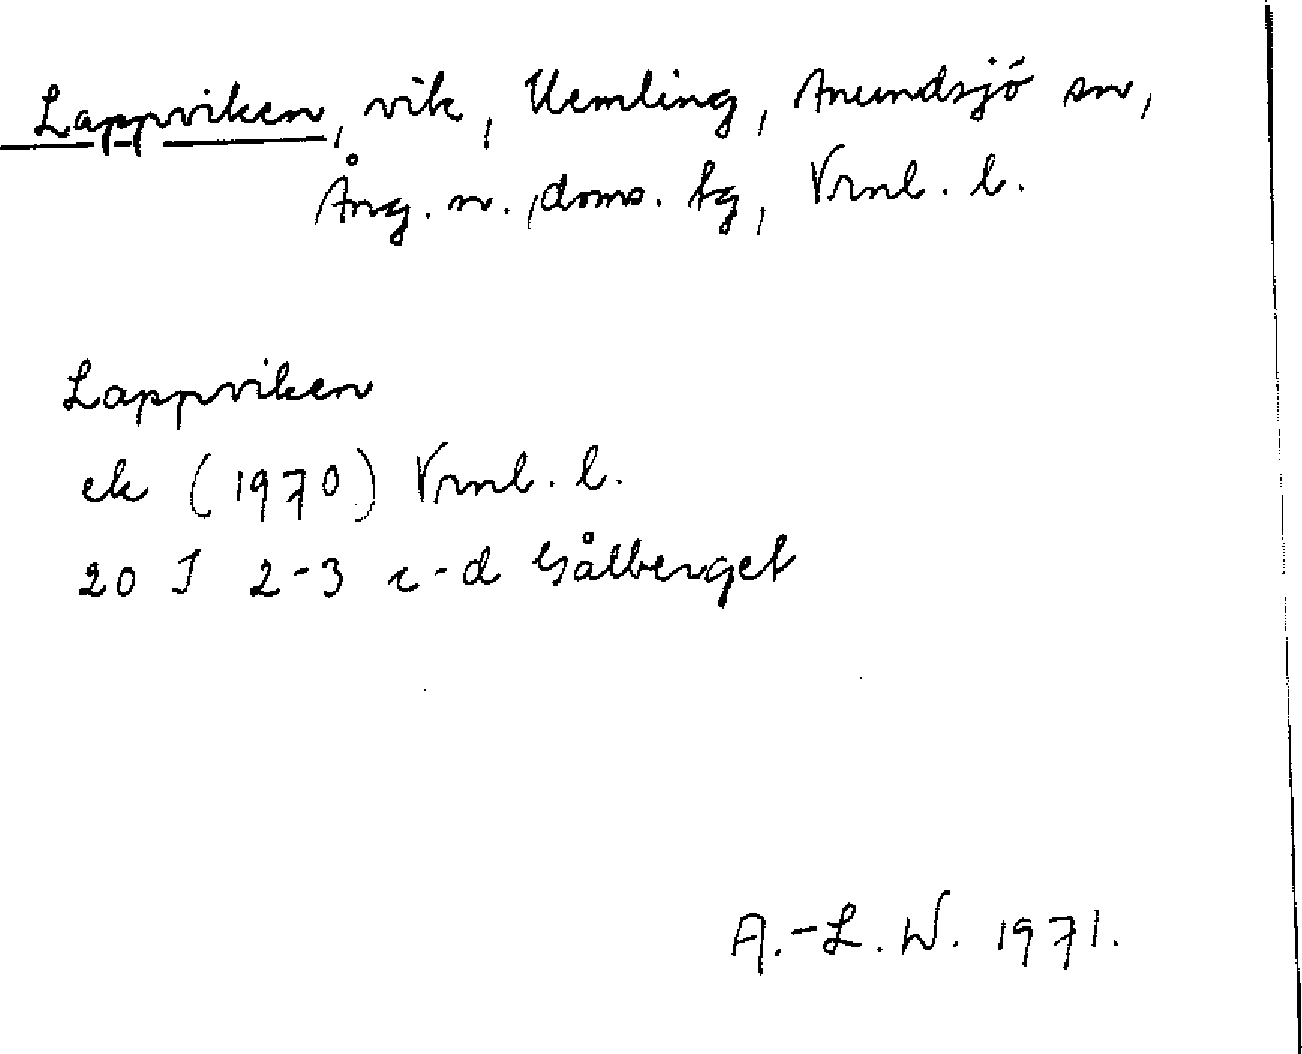 Lappviken, vik, Uemling, Anundsjö sn,
Ång. n. doms. tg, Vrnl. l.
Lappviken
ek (1970) Vrnl. l.
20 I 2-3 c-d Gålberget
A.-L. W. 1971.